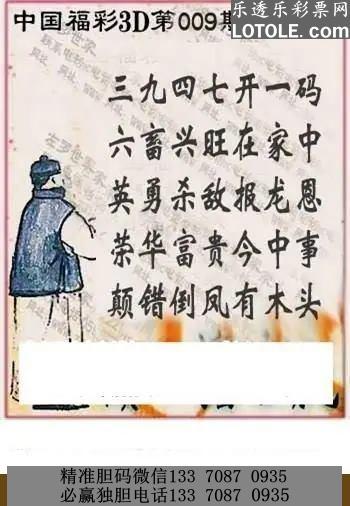 乐透乐彩票网
中国福彩3D第009期
LOTOLE.COM
三九四七开一码
六畜兴旺在家中
英勇杀敌报龙恩
荣华富贵今中事
颠错倒凤有木头
精准胆码微信133 7087 0935
必赢独胆电话133 7087 0935